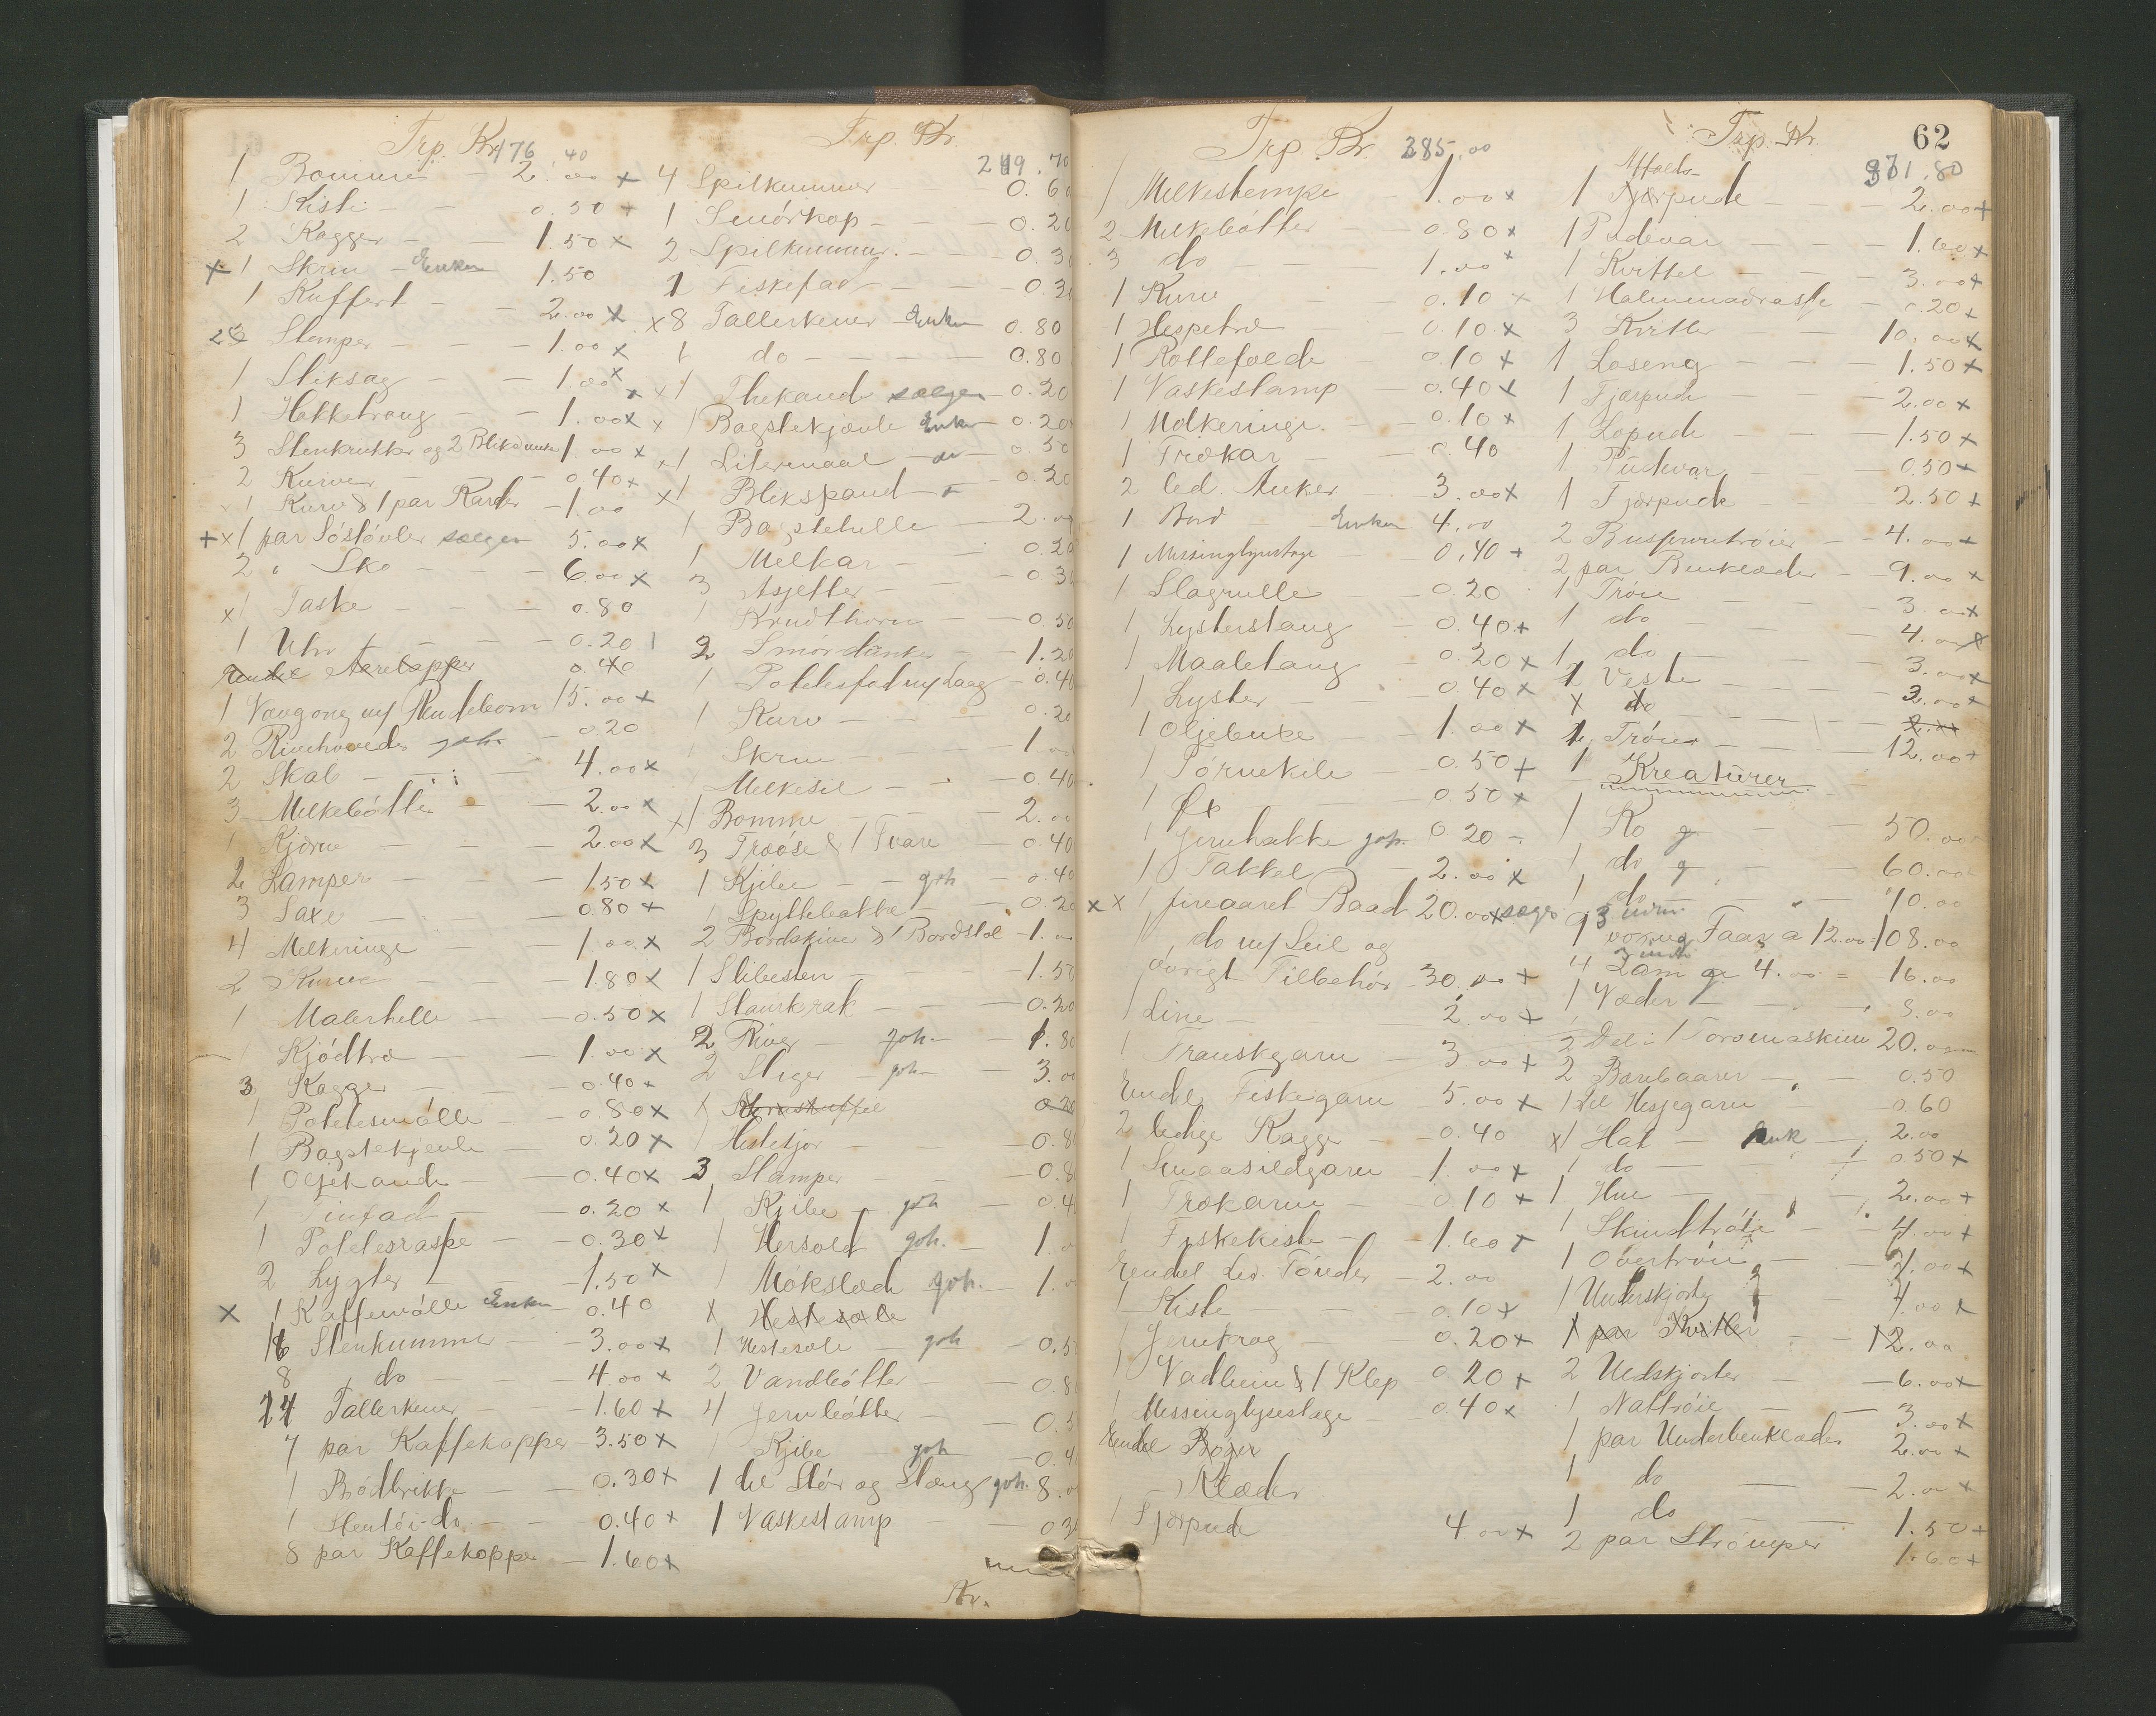 Trp. Kr. 176.40
1 Bomme - 2.00 x
1 Kiste - 0.50 +
2 Kagger - 1.50 x
x 1 Skrin - Enken 1.50
1 Kuffert - 2.00 x
Stamper - 1.00 x
1 Stiksag - 1.00 x
1 Hakketraug - 1.00 x
3 Stenkrukker og 2 Blikdunke 1.00 x
2 Kurver - 0.40 x
1 Kurv & 1 par Karder - 1.00
+ x 1 par Söstövler sælges 5.00 x
2 " Sko - 6.00 x
x 1 Taske - 0.80
1 Uhr - 0.20
0.40
1 Vævgong m/ Rendebom 15.00 x
2 Rivehoveder goh. 0.20
2 Skab - 4.00 x
3 Melkebötter - 2.00 x
1 Kjörne - 2.00 x
2 Lamper - 1.50 x
3 Saxe - 0.80 +
4 Melkeringe - 1.00 x
2 Kurve - 1.80 x
1 Malerhelle - 0.50 x
1 Kjödtræ - 1.00 x
3 Kagger - 0.40 +
1 Potetesmölle - 0.80 x
1 Bagstekjevle - 0.20 x
1 Oljekande - 0.40 x
1 Tinfad - 0.20 x
1 Potetesraspe - 0.30 x
2 Lygter - 1.50 x
x 1 Kaffemölle Enken 0.40
16 Stenkummer - 3.00 x
8 do - 4.00 x
14 Tallerkener - 1.60 x
7 par Kaffekopper - 3.50 x
1 Brödbrikke - 0.30 x
1 Stentöi do - 0.40 x
8 par Kaffekopper - 1.60 x
Trp. Kr.
249.70
4 Spilkummer 0.60
1 Smörkop - 0.20
2 Spilkummer. - 0.3
1 Fiskefad - 0.3
x 8 Tallerkener Enken 0.80
1 do - 0.80
x 1 Thekande sælges 0.20
x 1 Bagstekjævle Enken 0.20
x 1 Litermaal - do 0.50
x 1 Blikspand - 0.20
1 Bagstehelle - 2.00
1 Melkar - 0.20
3 Asjetter - 0.3
1 Krudthorn - 0.50
2 Smördunker - 1.20
1 Potetesfad m/ Laag - 0.40
1 Kurv - 0.20
1 Skrin - 1.00
Melkesil - 0.40
x 1 Bomme - 2.00
3 Træöse & 1 Tvare - 0.40
1 Kjibe - goh - 0.40
1 Spyttebakke - 0.20
2 Bordskiver & 1 Bordstol - 1.
1 Slibesten - 1.50
1 Staurkrak - 0.20
2 River - goh. - 1.80
2 Stiger - goh. - 3.00
0.20
1 Hestetjor - 0.8
3 Stamper - 0.8
1 Kjibe - goh 0.4
1 Hersold goh. - 1.
1 Mökslede goh. - 1.
x Hestesæle
1 Hestesæle - goh - 0.5
2 Vandbötter - 0.8
4 Jernbötter - 0.5
1 Kjibe - goh - 0.4
1 del Stör og Stæng goh. 8.
1 Vaskestamp - 0.3
Kr.
Trp. Kr. 285.00
1 Melkestempe - 1.00 x
2 Melkebötter - 0.80 x
3 do - 1.00 x
1 Kurv - 0.10 x
1 Hespetræ - 0.10 x
1 Rottefælde 0.10 x
1 Vaskestamp - 0.40 x
1 Molkeringe. - 0.10 x
1 Trækar - 0.40
2 led. Anker - 3.00 x
1 Bord - Enken 4.00
1 Missinglysestage - 0.40 +
1 Slagrulle - 0.20
1 Lysterstang - 0.40 +
1 Maaletang - 0.20 x
1 Lyster - 0.40 x
1 Oljebuxe - 1.00 x
1 Törnekile - 0.50 +
1 Öx - 0.50 x
1 Jernhakke goh. 0.20 -
1 Takkel 2.00 x
x x 1 fireaaret Baad 20.00 x sælges
1 do m/ Seil og
övrigt Tilbehör 30.00 +
1 Line - 2.00 +
1 Transkgarn - 3.00 +
Endel Fiskegarn - 5.00 x
2 ledige Kagge - 0.40
1 Smaasildgarn 1.00 x
1 Trækarm - 0.10 +
1 Fiskekiste - 1.60 +
Endel led. Tönder - 2.00
1 Kiste - 0.10 x
1 Jerntrog - 0.20 x
1 Vadbein & 1 Klep 0.20 +
1 Messinglysestage - 0.40 x
Endel Bøger
Klæder
1 Fjærpude 4.00 x
Trp. Kr.
62
371.80
Affalds-
1 Fjærpude - 2.00 +
1 Pudevar - 1.60 x
1 Kvittel - 3.00 x
1 Halmmadrasse - 0.20 +
3 Kvitler - 10.00 x
1 Loseng - 1.50 x
1 Fjærpude - 2.00 x
1 Lopude - 1.50 x
1 Pudevar - 0.50 +
1 Fjærpude - 2.50 +
2 Busserontröier - 4.00 +
2 par Benklæder - 9.00 x
1 Tröie - 3.00 x
1 do - 4.00 x
1 do - 3.00 x
1 Veste - 2.00 +
x do - 2.00
1 Tröier - 12.00 +
Kreaturer
1 Ko g - 50.00
1 do g - 60.00
1 do - 70.00
9 voxne Faar a 12.00 = 108.00
4 Lam a 4.00 = 16.00
1 Væder - 8.00
2 Del i 1 Torvmaskine 20.00
2 Bærebaarer - 0.50
1 del Hesjegarn - 0.60
x 1 Hat - Enk - 2.00
1 do - 0.50 x
1 Hue - 2.00 +
1 Skindtröie - 4.00 +
1 Overtröie - 2.00 x
1 Underskjorte 4.00 x
1 par Kvitler - 12.00
2 Uldskjorter - 6.00 x
1 Nattröie - 3.00 x
1 par Underbenklæder 2.00 x
1 do - 2.00 x
1 do - 1.50 +
2 par Strömper 1.60 +